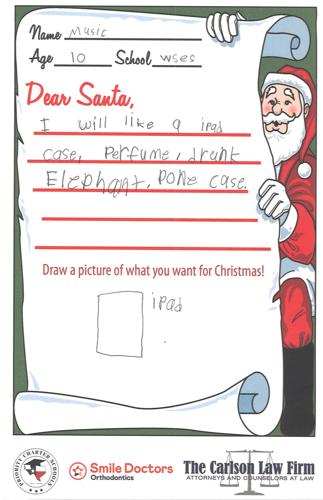 Name Music
Age 10 School WSES
Dear Santa,
I will like a ipad
case, Perfume, drunk
Elephant, Pone case.
Draw a picture of what you want for Christmas!
ipad
PRIORITY CHARTER SCHOOLS
Smile Doctors
Orthodontics
The Carlson Law Firm
ATTORNEYS AND COUNSELORS AT LAW